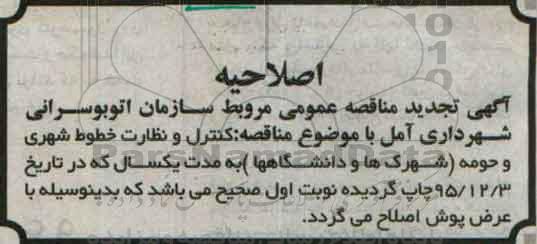 اصلاحیه
آگهی تجدید مناقصه عمومی مربوط سازمان اتوبوسرانی
شهرداری آمل با موضوع مناقصه:کنترل و نظارت خطوط شهری
و حومه (شهرک ها و دانشگاهها )به مدت یکسال که در تاریخ
۹۵/۱۲/۳چاپ گردیده نوبت اول صحیح می باشد که بدینوسیله با
عرض پوش اصلاح می گردد.